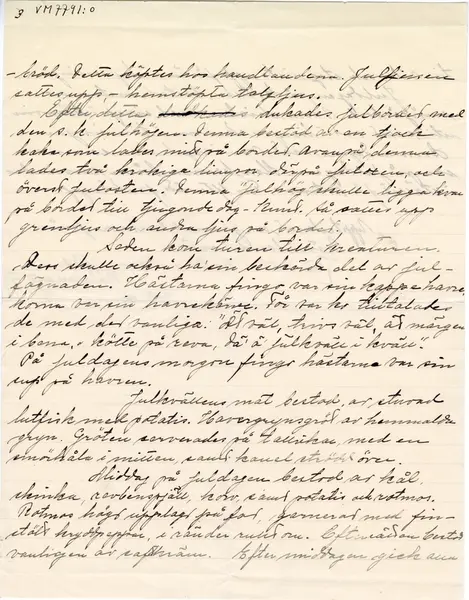 3 VM7791:0
-bröd. Detta köptes hos handlandena. Julljusen
sattes upp, - hemstöpta talgljus.
Efter detta dukades julbordet med
den s.k. julhögen. Denna bestod av en tjock
kaka som lades mitt på bordet. Ovanpå denna
lades två krokiga limpor, därpå julosten, och
överst julosten. Denna "Julhög" skulle ligga kvar
på bordet till tjugonde dag-Knut. Så sattes upp
grenljus och andra ljus på bordet.
Sedan kom turen till kreaturen.
Dess skulle också ha sin beskärda del av jul-
fägnaden. Hästarna fingo var sin kappe havre
korna var sin havrekärve. För var
de med det vanliga: "Ät väl, trivs väl, märgen
i bena, kölle på reva, dä ä julkväll i kväll".
På juldagens morgon fingo hästarna var sin
sup på havren.
Julkvällens mat bestod av stuvad
lutfisk med potatis. Havregrynsgröt av hemmalda
gryn. Gröten serverades på tallrikar med en
smörhåla i mitten, samt kanel strödd över.
Middag på juldagen bestod av kål,
skinka, revbenspjäll, korv, samt potatis och rotmos.
Rotmos högt upplagt på fat, garnerat med fin-
stött kryddpeppar, i ränder runt om. Efterrätten bestod
vanligen av saftkräm. Efter middagen gick man